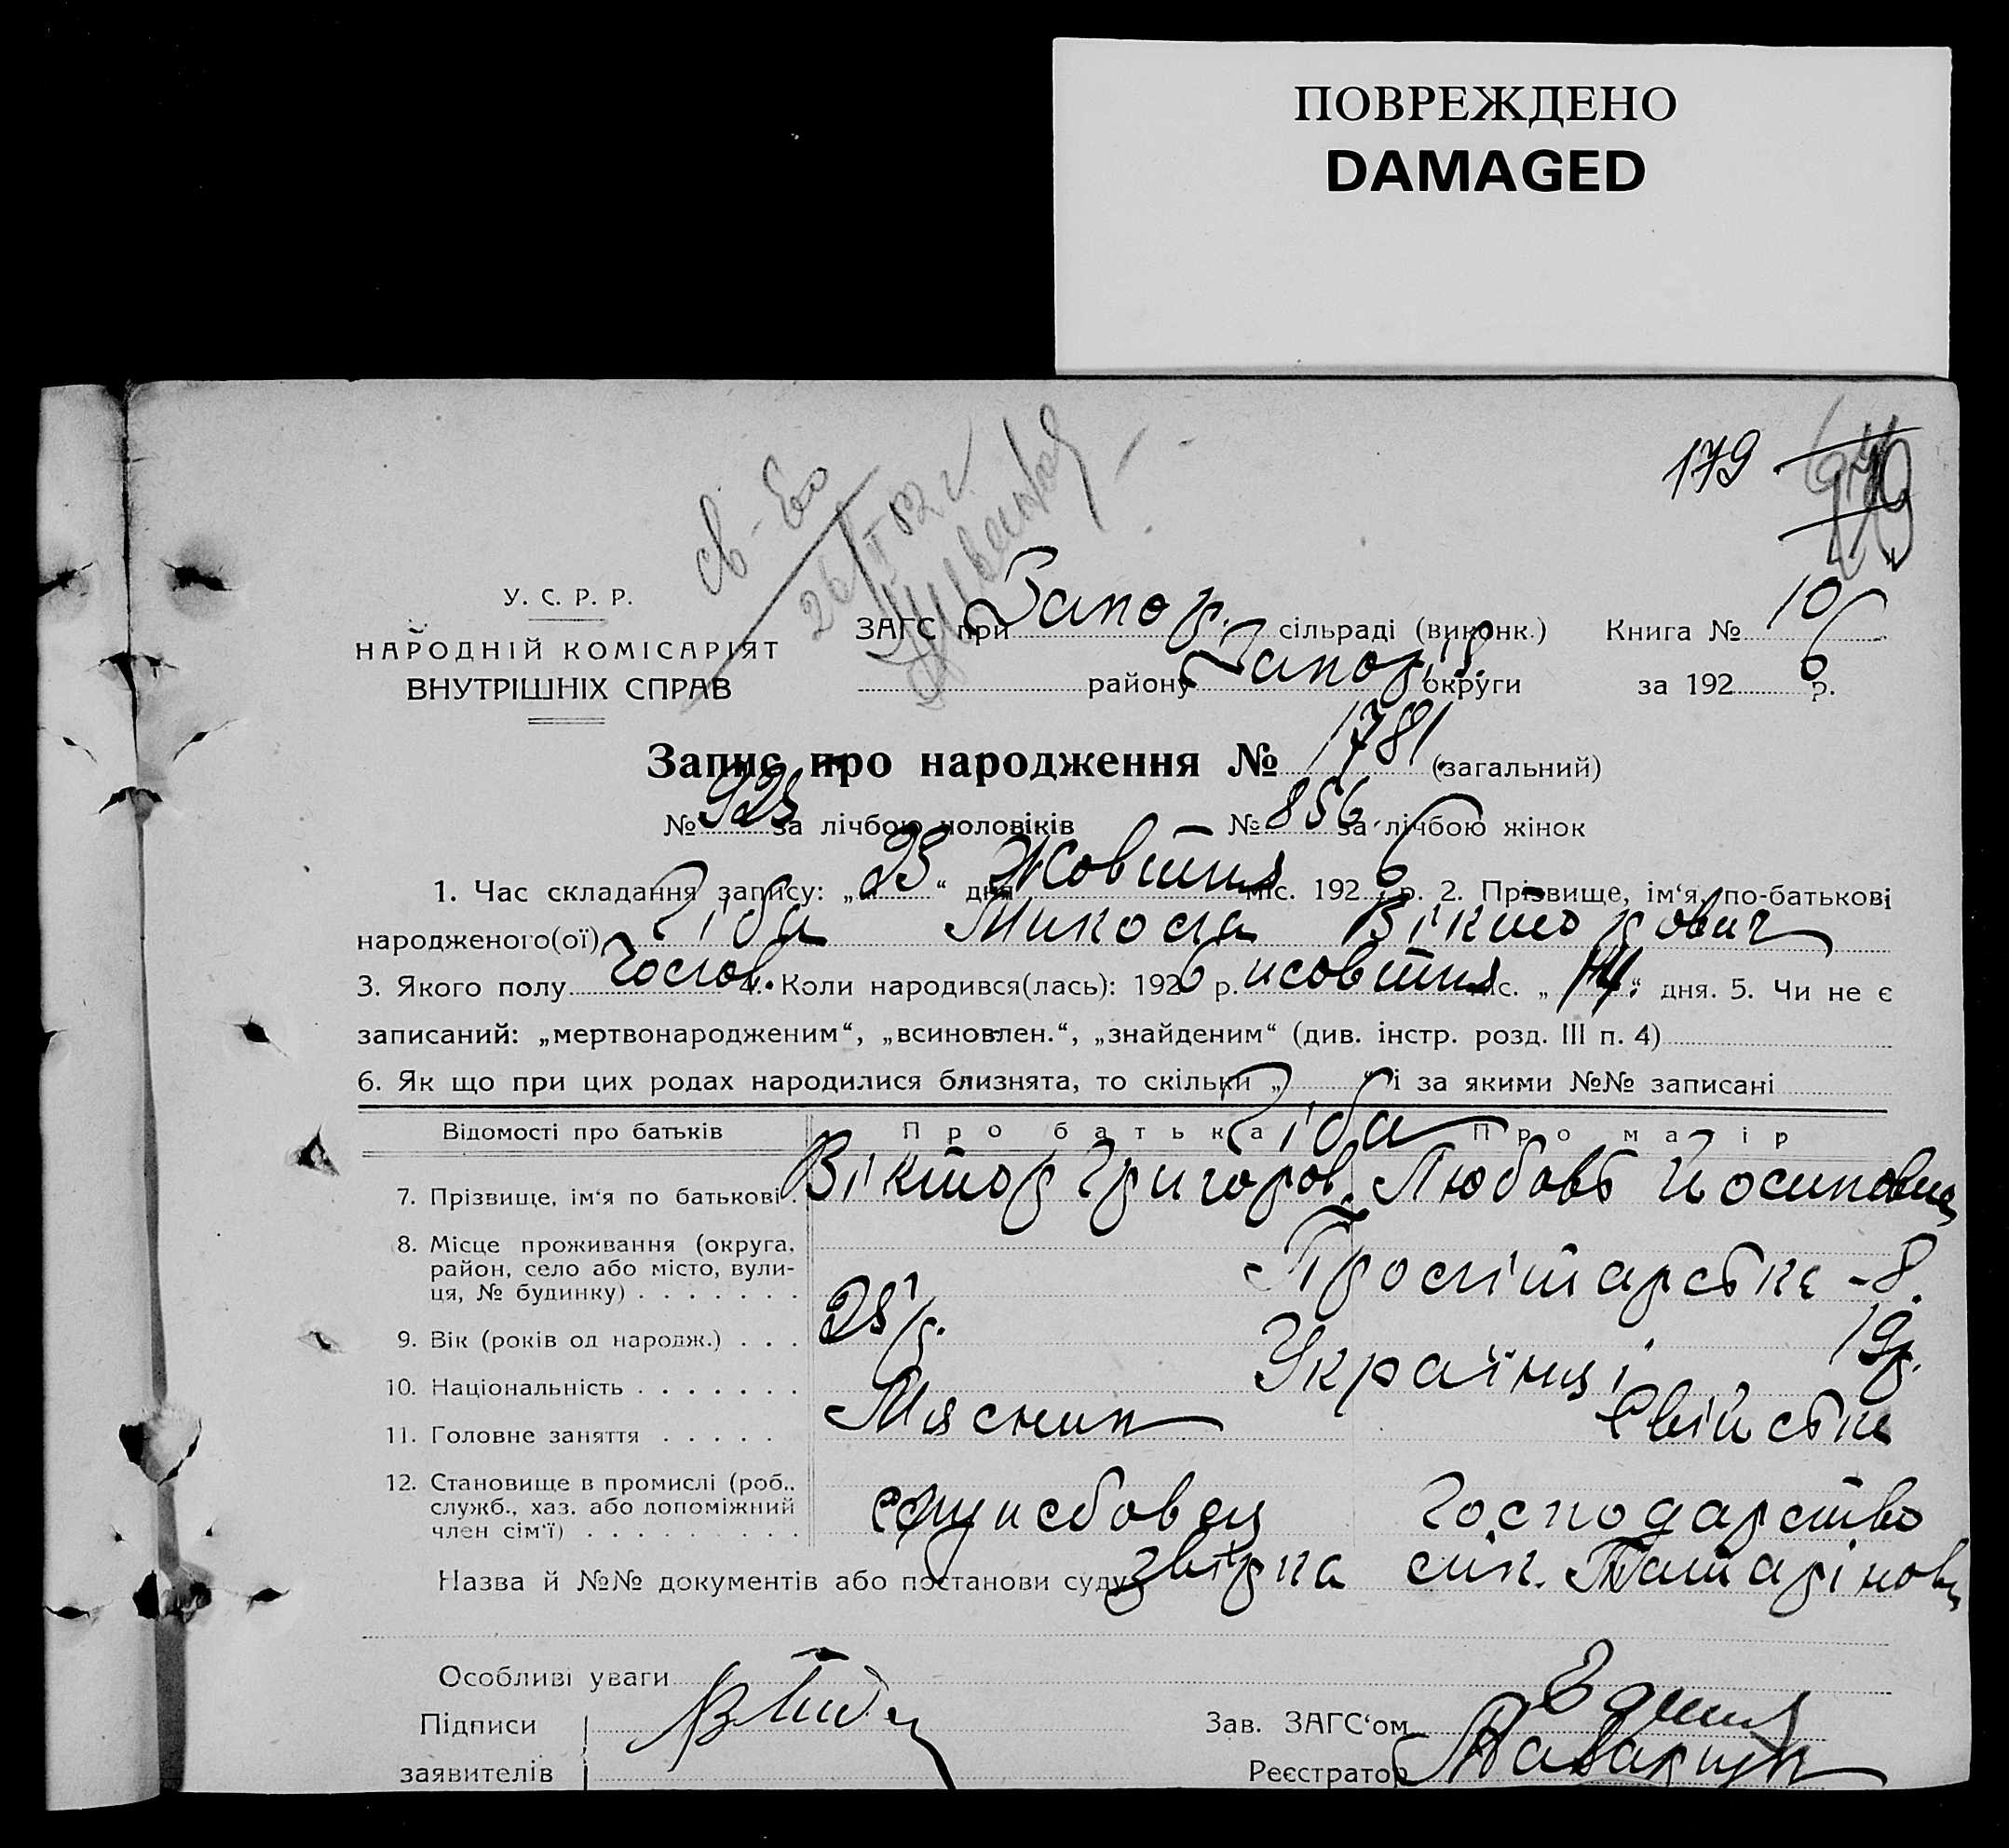 ПОВРЕЖДЕНО
DAMAGED
179
св-во
26/II 52 г.
У. С. Р. Р.
НАРОДНІЙ КОМІСАРІЯТ
ВНУТРІШНІХ СПРАВ
ЗАГС при Запор. сільраді (виконк.) Книга № 10
району Запор. округи за 1926 р.
Запис про народження № 1781 (загальний)
№ 925 за лічбою чоловіків № 856 за лічбою жінок
1. Час складання запису: „23“ дня Жовтня міс. 1926 р. 2. Прізвище, ім‘я, по-батькові
народженого(ої) Гіба Микола Вікторович
3. Якого полу Чолов. 4. Коли народився(лась): 1926 р. жовтня міс. „14“ дня. 5. Чи не є
записаний: „мертвонародженим“, „всиновлен.“, „знайденим“ (див. інстр. розд. III п. 4)
6. Як що при цих родах народилися близнята, то скільки „ “ і за якими №№ записані
Відомості про батьків Про батька Про матір
Гіба
7. Прізвище, ім‘я по батькові Віктор Григоров. Любовь Йосиповна
8. Місце проживання (округа, район, село або місто, вули-ця, № будинку) Пролітарська - 8.
9. Вік (років од народж.) 25 р. 19 р.
10. Національність Українці
11. Головне заняття Мясник Свійське
12. Становище в промислі (роб., служб., хаз. або допоміжний член сім‘ї) службовець Господарство
Назва й №№ документів або постанови суду звірка
Особливі уваги
Підписи
Зав. ЗАГС‘ом
заявителів
Реєстратор